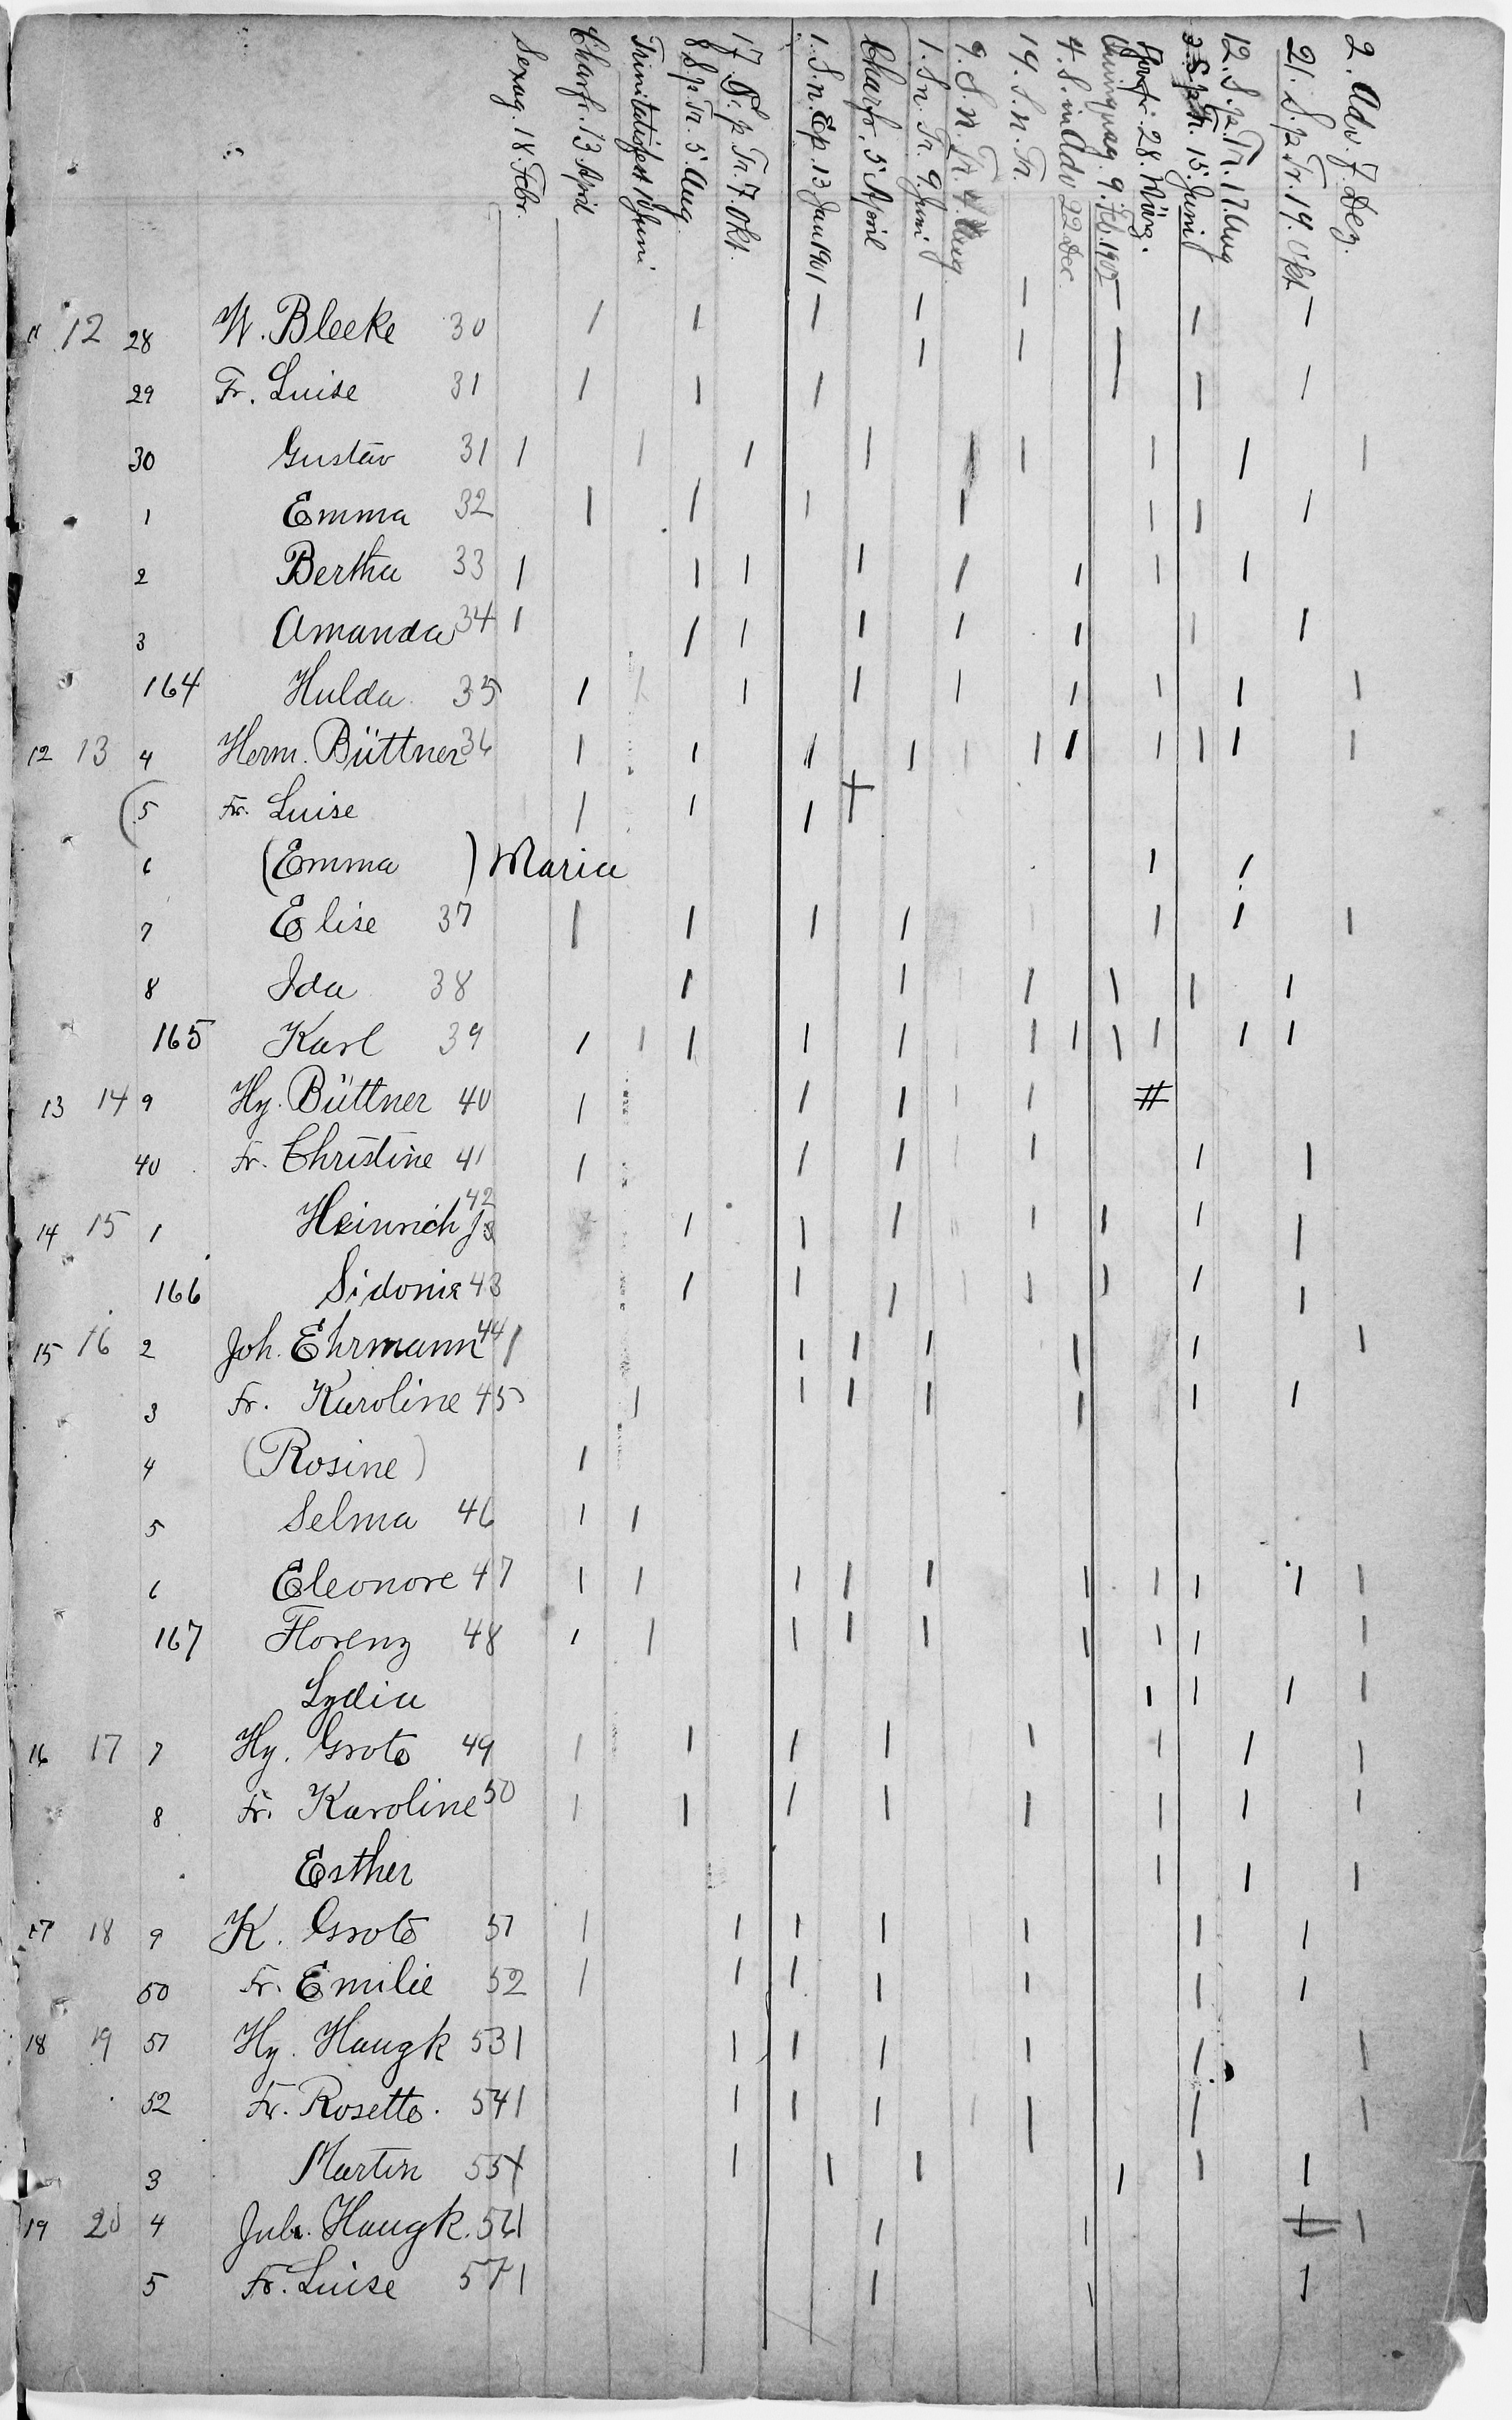 Sexag. 18. Febr.
Charfr. 13 April
Trinitatisfest Juni
8 S. p. Tr. 5. Aug.
17. S. p. Tr. 7. Okt.
1. S. n. Ep. 13 Jan 1901
Charfr. 5 April
1. S. n. Tr. 9. Juni
9. S. n. Tr. 4. Aug
14. S. n. Tr.
4. S. in Adv 22 Dec.
Quinquag. 9. Feb. 1902
28. März.
3. S. p. Tr. 15. Juni
12. S. p. Tr. 17. Aug
21. S. p. Tr. 19. Okt
2. Adv. 7. Dez.
11 12 28 W. Bleeke 30 | | | | | | | |
29 Fr. Luise 31 | | | | | | | |
30 Gustav 31 | | | | | | | | |
1 Emma 32 | | | | | | |
2 Bertha 33 | | | | | | | |
3 Amanda 34 | | | | | | | |
164 Hulda 35 | | | | | | | | |
12 13 4 Herm. Büttner 36 | | | | | | | | | | |
(5 Fr. Luise | | | +
6 (Emma ) Maria | |
7 Elise 37 | | | | | | |
8 Ida 38 | | | | | |
165 Karl 39 | | | | | | | | | | |
13 14 9 Hy. Büttner 40 | | | | #
40 Fr. Christine 41 | | | | | | |
14 15 1 Heinrich Jr 42 | | | | | | |
166 Sidonie 43 | | | | | | |
15 16 2 Joh. Ehrmann 44 | | | | | | |
3 Fr. Karoline 45 | | | | | | |
4 (Rosine) |
5 Selma 46 | |
6 Eleonore 47 | | | | | | | | | |
167 Florenz 48 | | | | | | | | |
Lydia | | | |
16 17 7 Hy. Grote 49 | | | | | | | |
8 Fr. Karoline 50 | | | | | | | |
Esther | | |
17 18 9 K. Grote 51 | | | | | | |
50 Fr. Emilie 52 | | | | | | |
18 19 51 Hy. Haugk 53 | | | | | | |
52 Fr. Rosette. 54 | | | | | | | |
3 Martin 55 | | | | | | |
19 20 4 Jul. Haugk. 56 | | | + |
5 Fr. Luise 57 | | | |